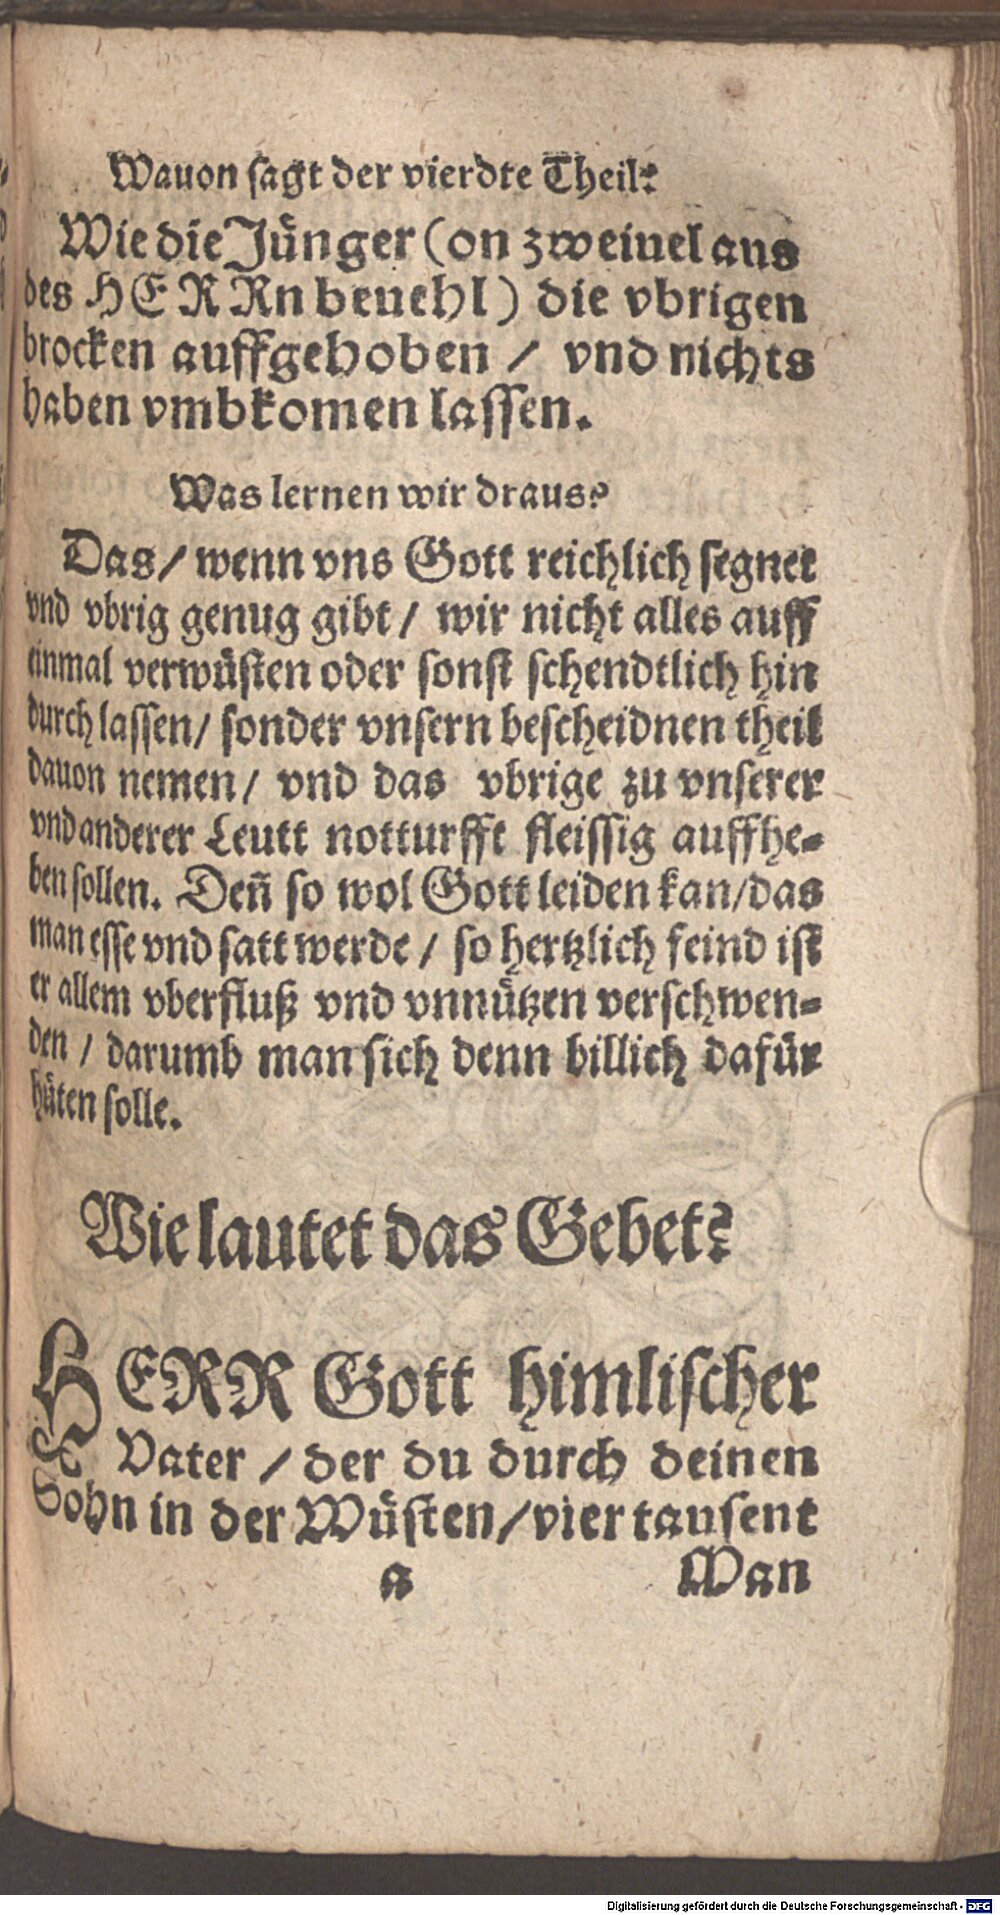 Wauon sagt der vierdte Theil?
Wie die Jünger (on zweiuel aus
des HERRn beuehl) die vbrigen
brocken auffgehoben / vnd nichts
haben vmbkomen lassen.
Was lernen wir draus?
Das / wenn vns Gott reichlich segnet
vnd vbrig genug gibt / wir nicht alles auff
einmal verwüsten oder sonst schendtlich hin
durch lassen / sonder vnsern bescheidnen theil
dauon nemen / vnd das vbrige zu vnserer
vnd anderer Leutt notturfft fleissig auffhe-
ben sollen. Deñ so wol Gott leiden kan / das
man esse vnd satt werde / so hertzlich feind ist
er allem vberfluß vnd vnnützen verschwen-
den / darumb man sich denn billich dafür
hüten solle.
Wie lautet das Gebet?
HERR Gott himlischer
Vater / der du durch deinen
Sohn in der Wüsten / vier tausent
a Man
Digitalisierung gefördert durch die Deutsche Forschungsgemeinschaft - DFG